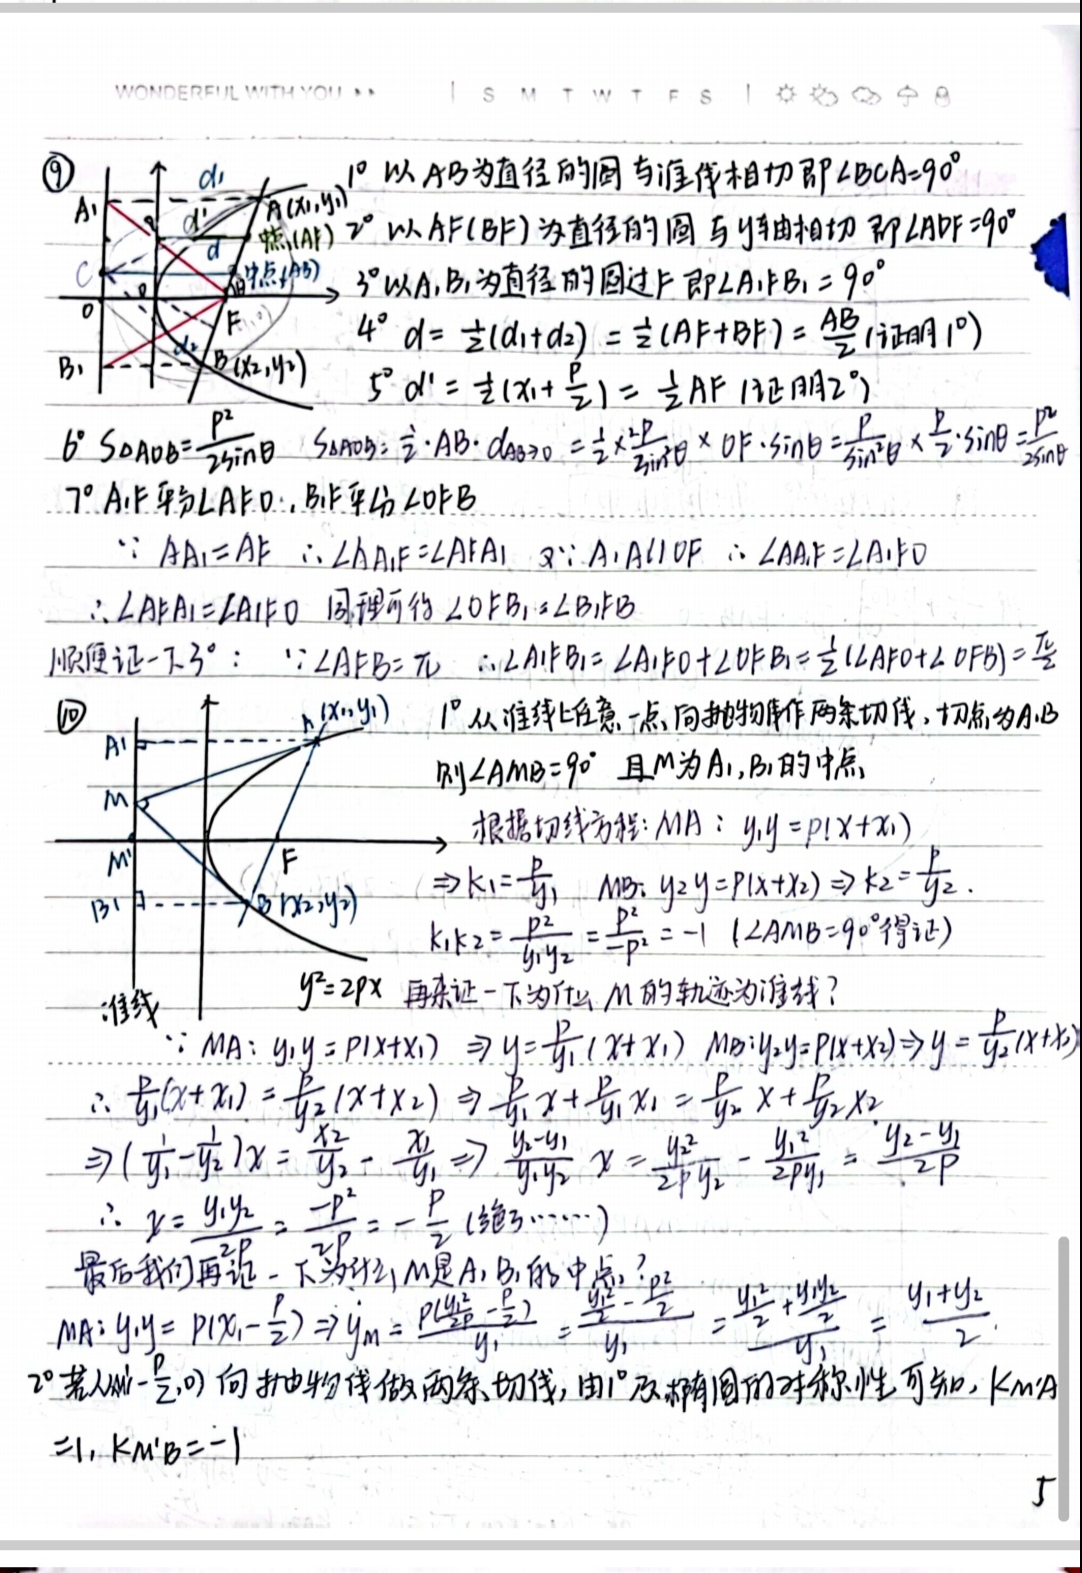 WONDERFUL WITH YOU
S M T W T F S
⑨
1° 以AB为直径的圆与准线相切 即∠BCA=90°
2° 以AF(BF)为直径的圆与y轴相切 即∠ADF=90°
3° 以A₁B₁为直径的圆过F 即∠A₁FB₁=90°
4° d=½(d₁+d₂)=½(AF+BF)=AB/2 (证明1°)
5° d'=½(x₁+p/2)=½AF (证明2°)
d₁
A₁
A(x₁,y₁)
d'
中点(AF)
d
C
中点(AB)
O
F
d₂
B₁
B(x₂,y₂)
6° S△AOB=p²/2sinθ S△AOB=½·AB·d_AB→O=½×2p/sin²θ×OF·sinθ=p/sin²θ×p/2·sinθ=p²/2sinθ
7° A₁F平分∠AFO, B₁F平分∠OFB
∵ AA₁=AF ∴∠AA₁F=∠AFA₁ 又∵ A₁A//OF ∴ ∠AA₁F=∠A₁FO
∴∠AFA₁=∠A₁FO 同理可得 ∠OFB₁=∠B₁FB
顺便证一下3°: ∵∠AFB=π ∴∠A₁FB₁=∠A₁FO+∠OFB₁=½(∠AFO+∠OFB)=π/2
⑩
1° 从准线上任意一点向抛物线作两条切线,切点为A、B
则∠AMB=90° 且M为A₁,B₁的中点
根据切线方程: MA: y₁y=p(x+x₁)
⇒k₁=p/y₁ MB: y₂y=p(x+x₂)⇒k₂=p/y₂.
k₁k₂=p²/y₁y₂=p²/-p²=-1 (∠AMB=90°得证)
A₁
A(x₁,y₁)
M
M'
F
B₁
B(x₂,y₂)
y²=2px
准线
再来证一下为什么M的轨迹为准线?
∵ MA: y₁y=p(x+x₁) ⇒y=p/y₁(x+x₁) MB:y₂y=p(x+x₂)⇒y=p/y₂(x+x₂)
∴ p/y₁(x+x₁)=p/y₂(x+x₂) ⇒ p/y₁x+p/y₁x₁=p/y₂x+p/y₂x₂
⇒(1/y₁-1/y₂)x=x₂/y₂-x₁/y₁⇒ y₂-y₁/y₁y₂ x=y₂²/2py₂-y₁²/2py₁=y₂-y₁/2p
∴ x=y₁y₂/2p=-p²/2p=-p/2 (绝了……)
最后我们再证一下为什么M是A₁B₁的中点?
MA: y₁y=p(x₁-p/2)⇒y_M=p(y₁²/2p-p/2)/y₁=(y₁²/2-p²/2)/y₁=(y₁²/2+y₁y₂/2)/y₁=y₁+y₂/2.
2° 若从M'(-p/2,0)向抛物线做两条切线,由1°及椭圆的对称性可知, kM'A
=1, kM'B=-1
5